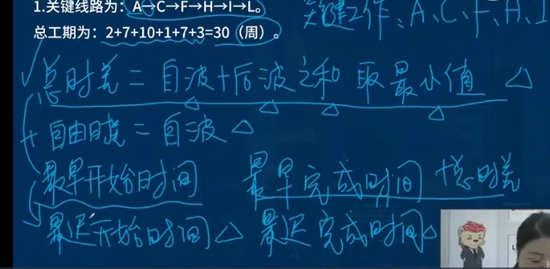 1.关键线路为：A→C→F→H→I→L。
关键工作、A、C、F、H、I
总工期为：2+7+10+1+7+3=30（周）。
总时差=自波+后波之和 取最小值 △
+自由时差=自波 △
最早开始时间 最早完成时间 +总时差
最迟开始时间△ 最迟完成时间△